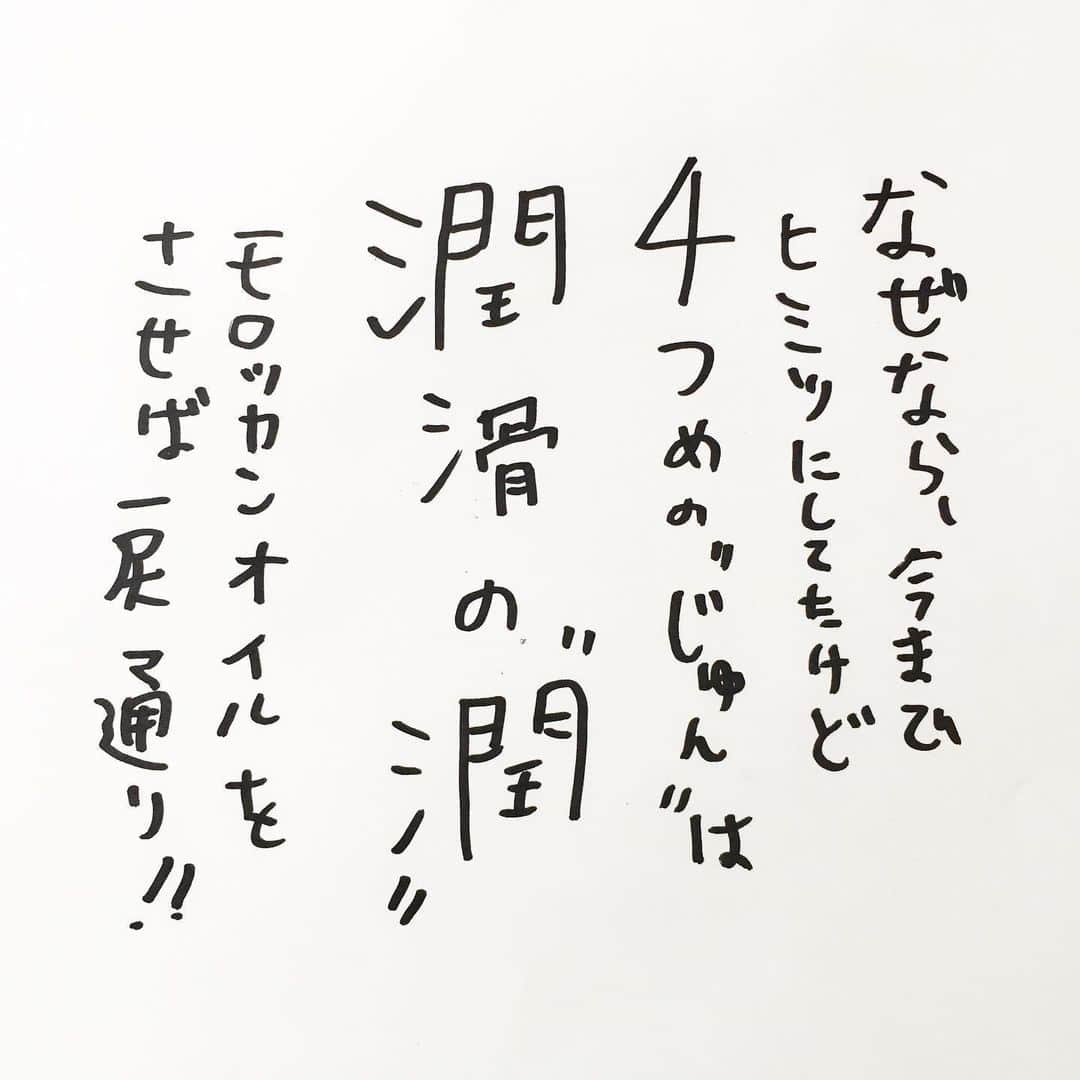 なぜなら、今まで
ヒミツにしてたけど
4つめの"じゅん"は
潤滑の"潤"
モロッカンオイルを
させば一尻通り!!